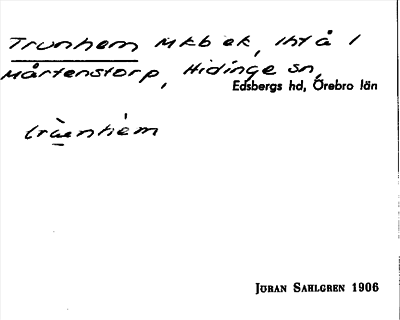 Trunhem Mkb ek, Iht å 1
Mårtenstorp, Hidinge sn,
Edsbergs hd, Örebro län
JÖRAN SAHLGREN 1906